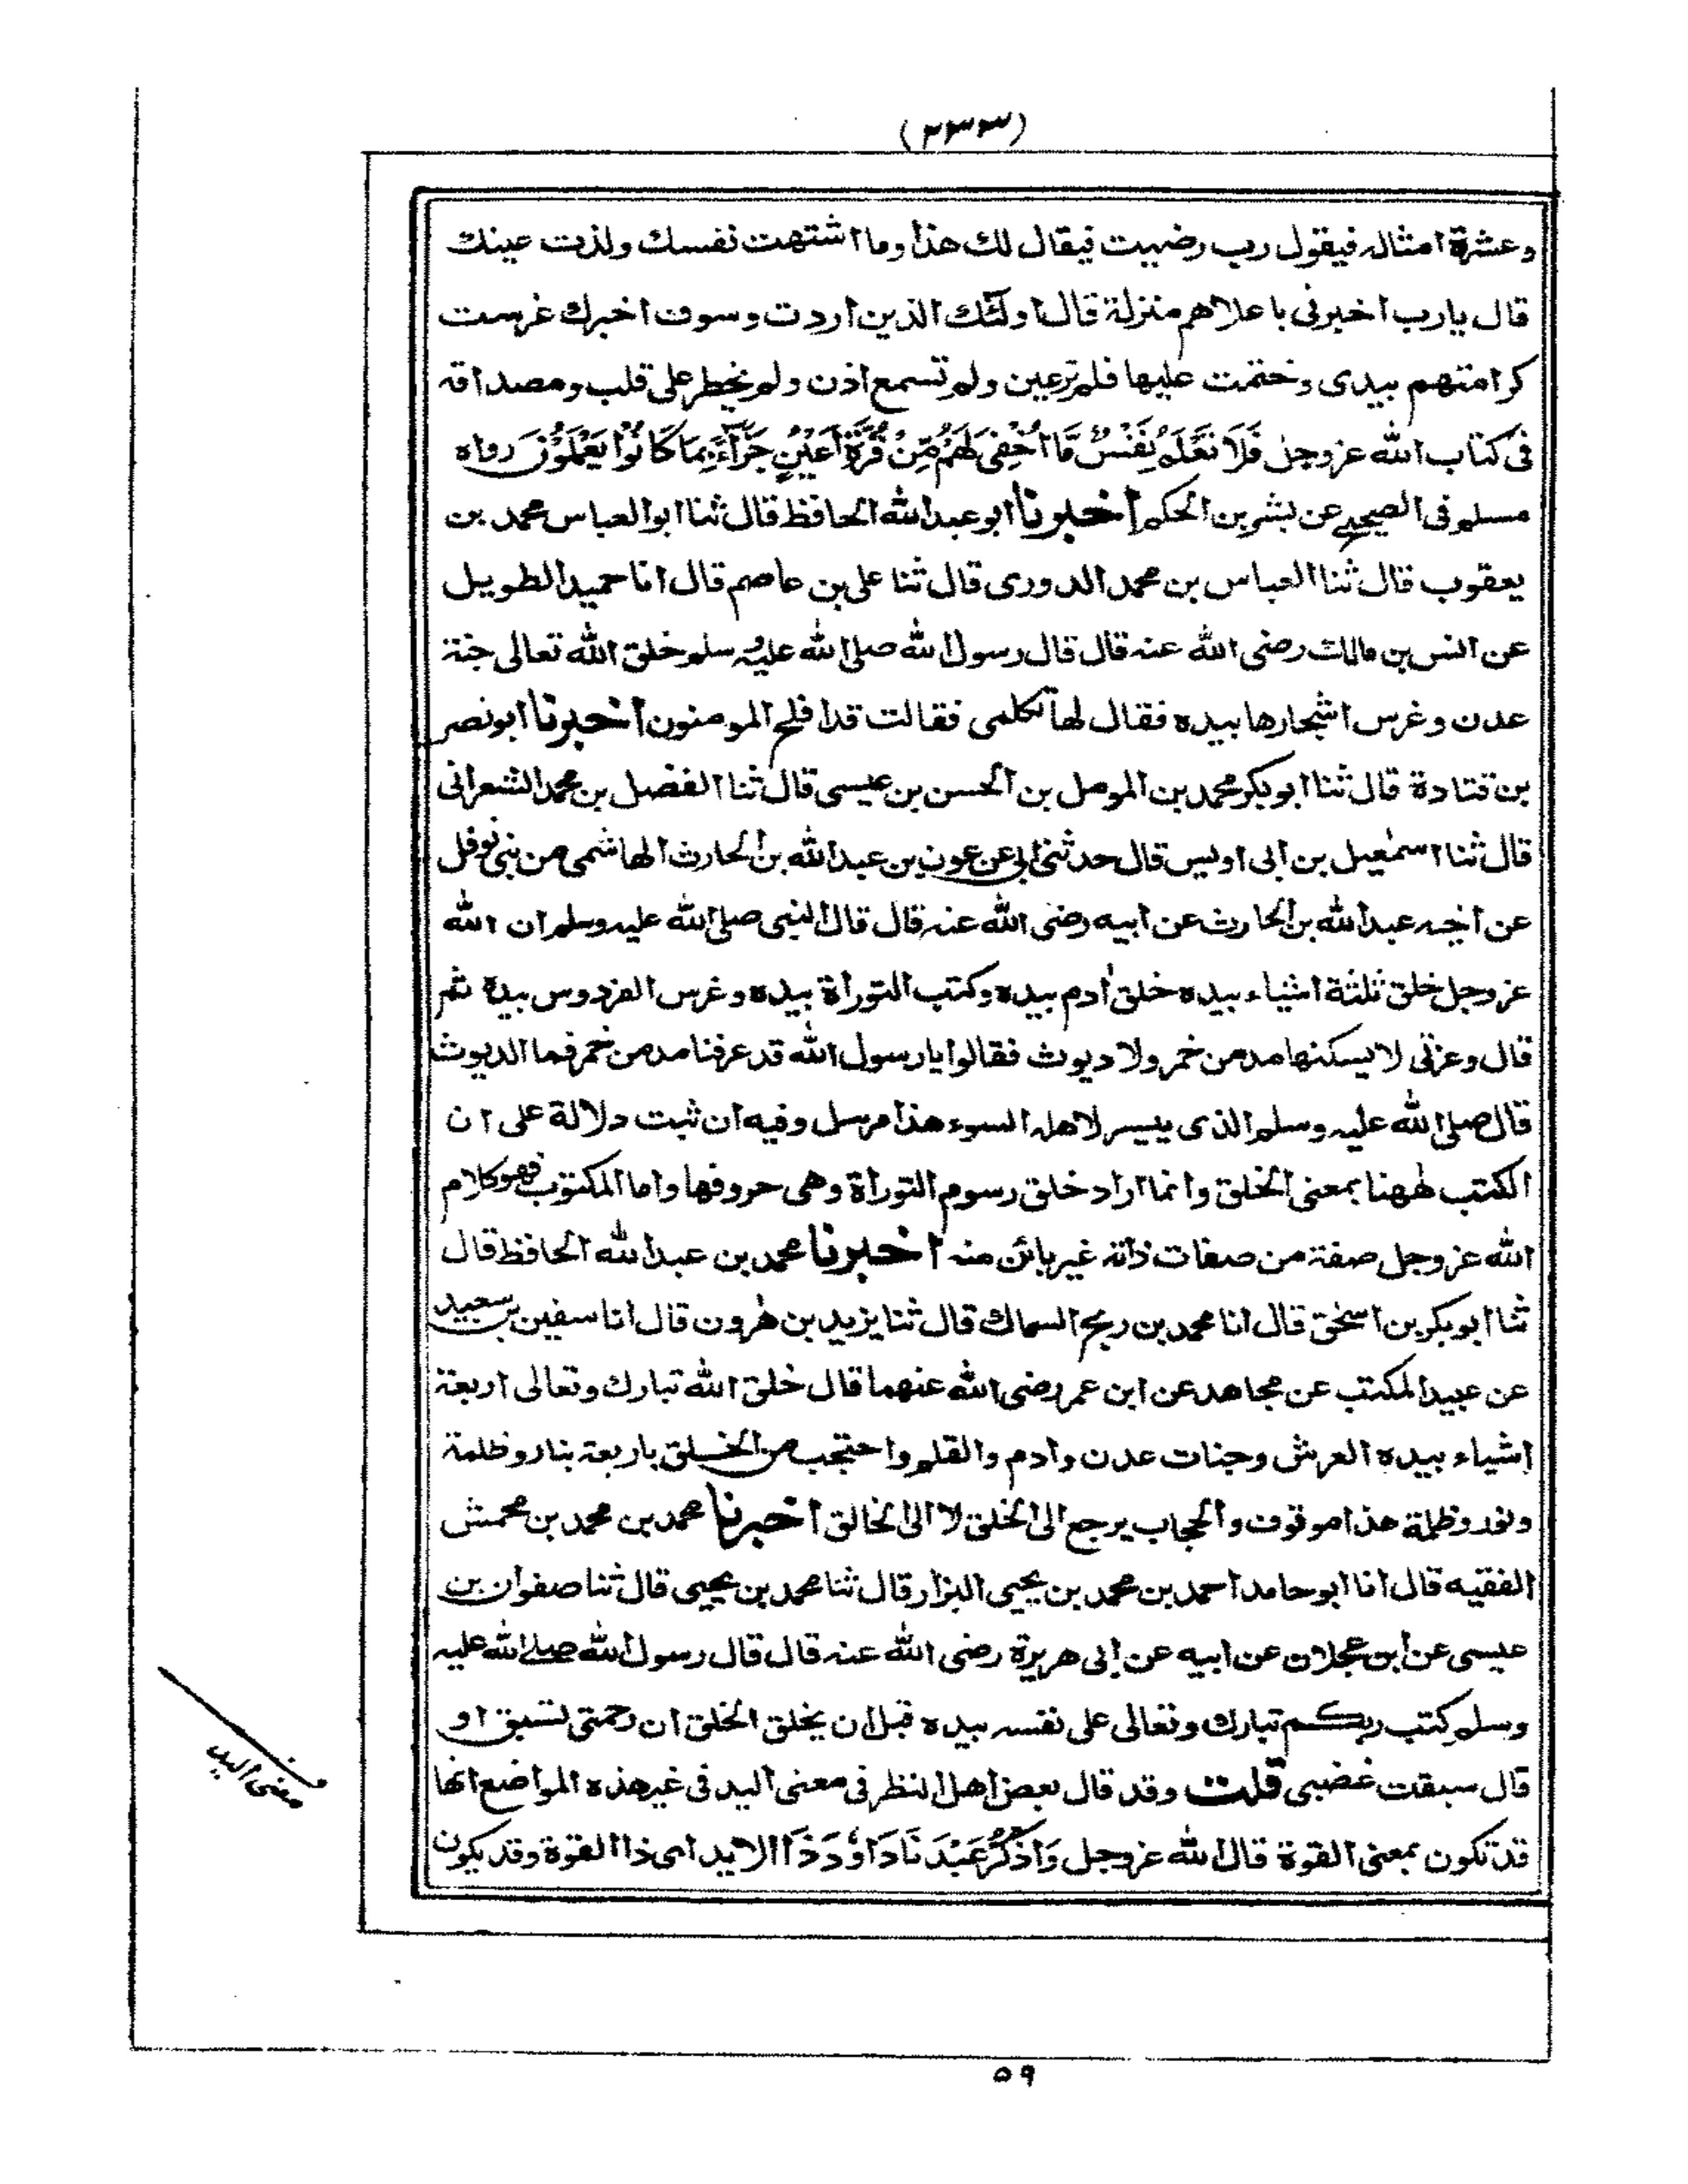 (٢٣٣)
وعشرة امثاله فيقول رب رضيت فيقال لك هذا وما اشتهت نفسك ولذت عينك
قال يارب اخبرنى باعلاهم منزلة قال اولئك الذين اردت وسوف اخبرك غرست
كرامتهم بيدى وختمت عليها فلم ترعين ولم تسمع اذن ولم يخطر على قلب ومصداقه
فى كتاب الله عزوجل فَلَا تَعْلَمُ نَفْسٌ مَّا اُخْفِىَ لَهُمْ مِّنْ قُرَّةِ اَعْيُنٍ جَزَآءً بِمَا كَانُوْا يَعْمَلُوْنَ رواه
مسلم فى الصحيح عن بشر بن الحكم اخبرنا ابو عبد الله الحافظ قال ثنا ابو العباس محمد بن
يعقوب قال ثنا العباس بن محمد الدورى قال ثنا على بن عاصم قال انا حميد الطويل
عن انس بن مالك رضى الله عنه قال قال رسول الله صلى الله عليه وسلم خلق الله تعالى جنة
عدن وغرس اشجارها بيده فقال لها تكلمى فقالت قد افلح المومنون اخبرنا ابونصر
بن قتادة قال ثنا ابو بكر محمد بن المومل بن الحسن بن عيسى قال ثنا الفضل بن محمد الشعرانى
قال ثنا اسمٰعيل بن ابى اويس قال حدثنى ابى عن عون بن عبد الله بن الحارث الهاشمى من بنى نوفل
عن اخيه عبد الله بن الحارث عن ابيه رضى الله عنه قال قال النبى صلى الله عليه وسلم ان الله
عزوجل خلق ثلثة اشياء بيده خلق اٰدم بيده وكتب التوراة بيده وغرس الفردوس بيدة ثم
قال وعزتى لا يسكنها مدمن خمر ولا ديوث فقالوا يارسول الله قد عرفنا مدمن خمر فما الديوث
قال صلى الله عليه وسلم الذى ييسر لاهله السوء هذا مرسل وفيه ان ثبت دلالة على ان
الكتب هٰهنا بمعنى الخلق وانما اراد خلق رسوم التوراة وهى حروفها واما المكتوب فهو كلام
الله عزوجل صفة من صفات ذاته غير بائن منه اخبرنا محمد بن عبد الله الحافظ قال
ثنا ابو بكر بن اسحٰق قال انا محمد بن ربح السماك قال ثنا يزيد بن هٰرون قال انا سفين بن سعيد
عن عبيد المكتب عن مجاهد عن ابن عمر رضى الله عنهما قال خلق الله تبارك وتعالى اربعة
اشياء بيده العرش وجنات عدن وادم والقلم واحتجب من الخلق باربعة بنار وظلمة
ونور وظلمة هذا موقوف والحجاب يرجع الى الخلق لا الى الخالق اخبرنا محمد بن محمد بن محمش
الفقيه قال انا ابو حامد احمد بن محمد بن يحيى البزار قال ثنا محمد بن يحيى قال ثنا صفوان بن
عيسى عن ابن عجلان عن ابيه عن ابى هريرة رضى الله عنه قال قال رسول الله صلى الله عليه
وسلم كتب ربكم تبارك وتعالى على نفسه بيده قبل ان يخلق الخلق ان رحمتى تسبق او
قال سبقت غضبى قلت وقد قال بعض اهل النظر فى معنى اليد فى غير هذه المواضع انها
قد تكون بمعنى القوة قال الله عزوجل وَاذْكُرْ عَبْدَنَا دَاوٗدَ ذَا الايد اى ذا القوة وقد يكون
معنى اليد
٥٩